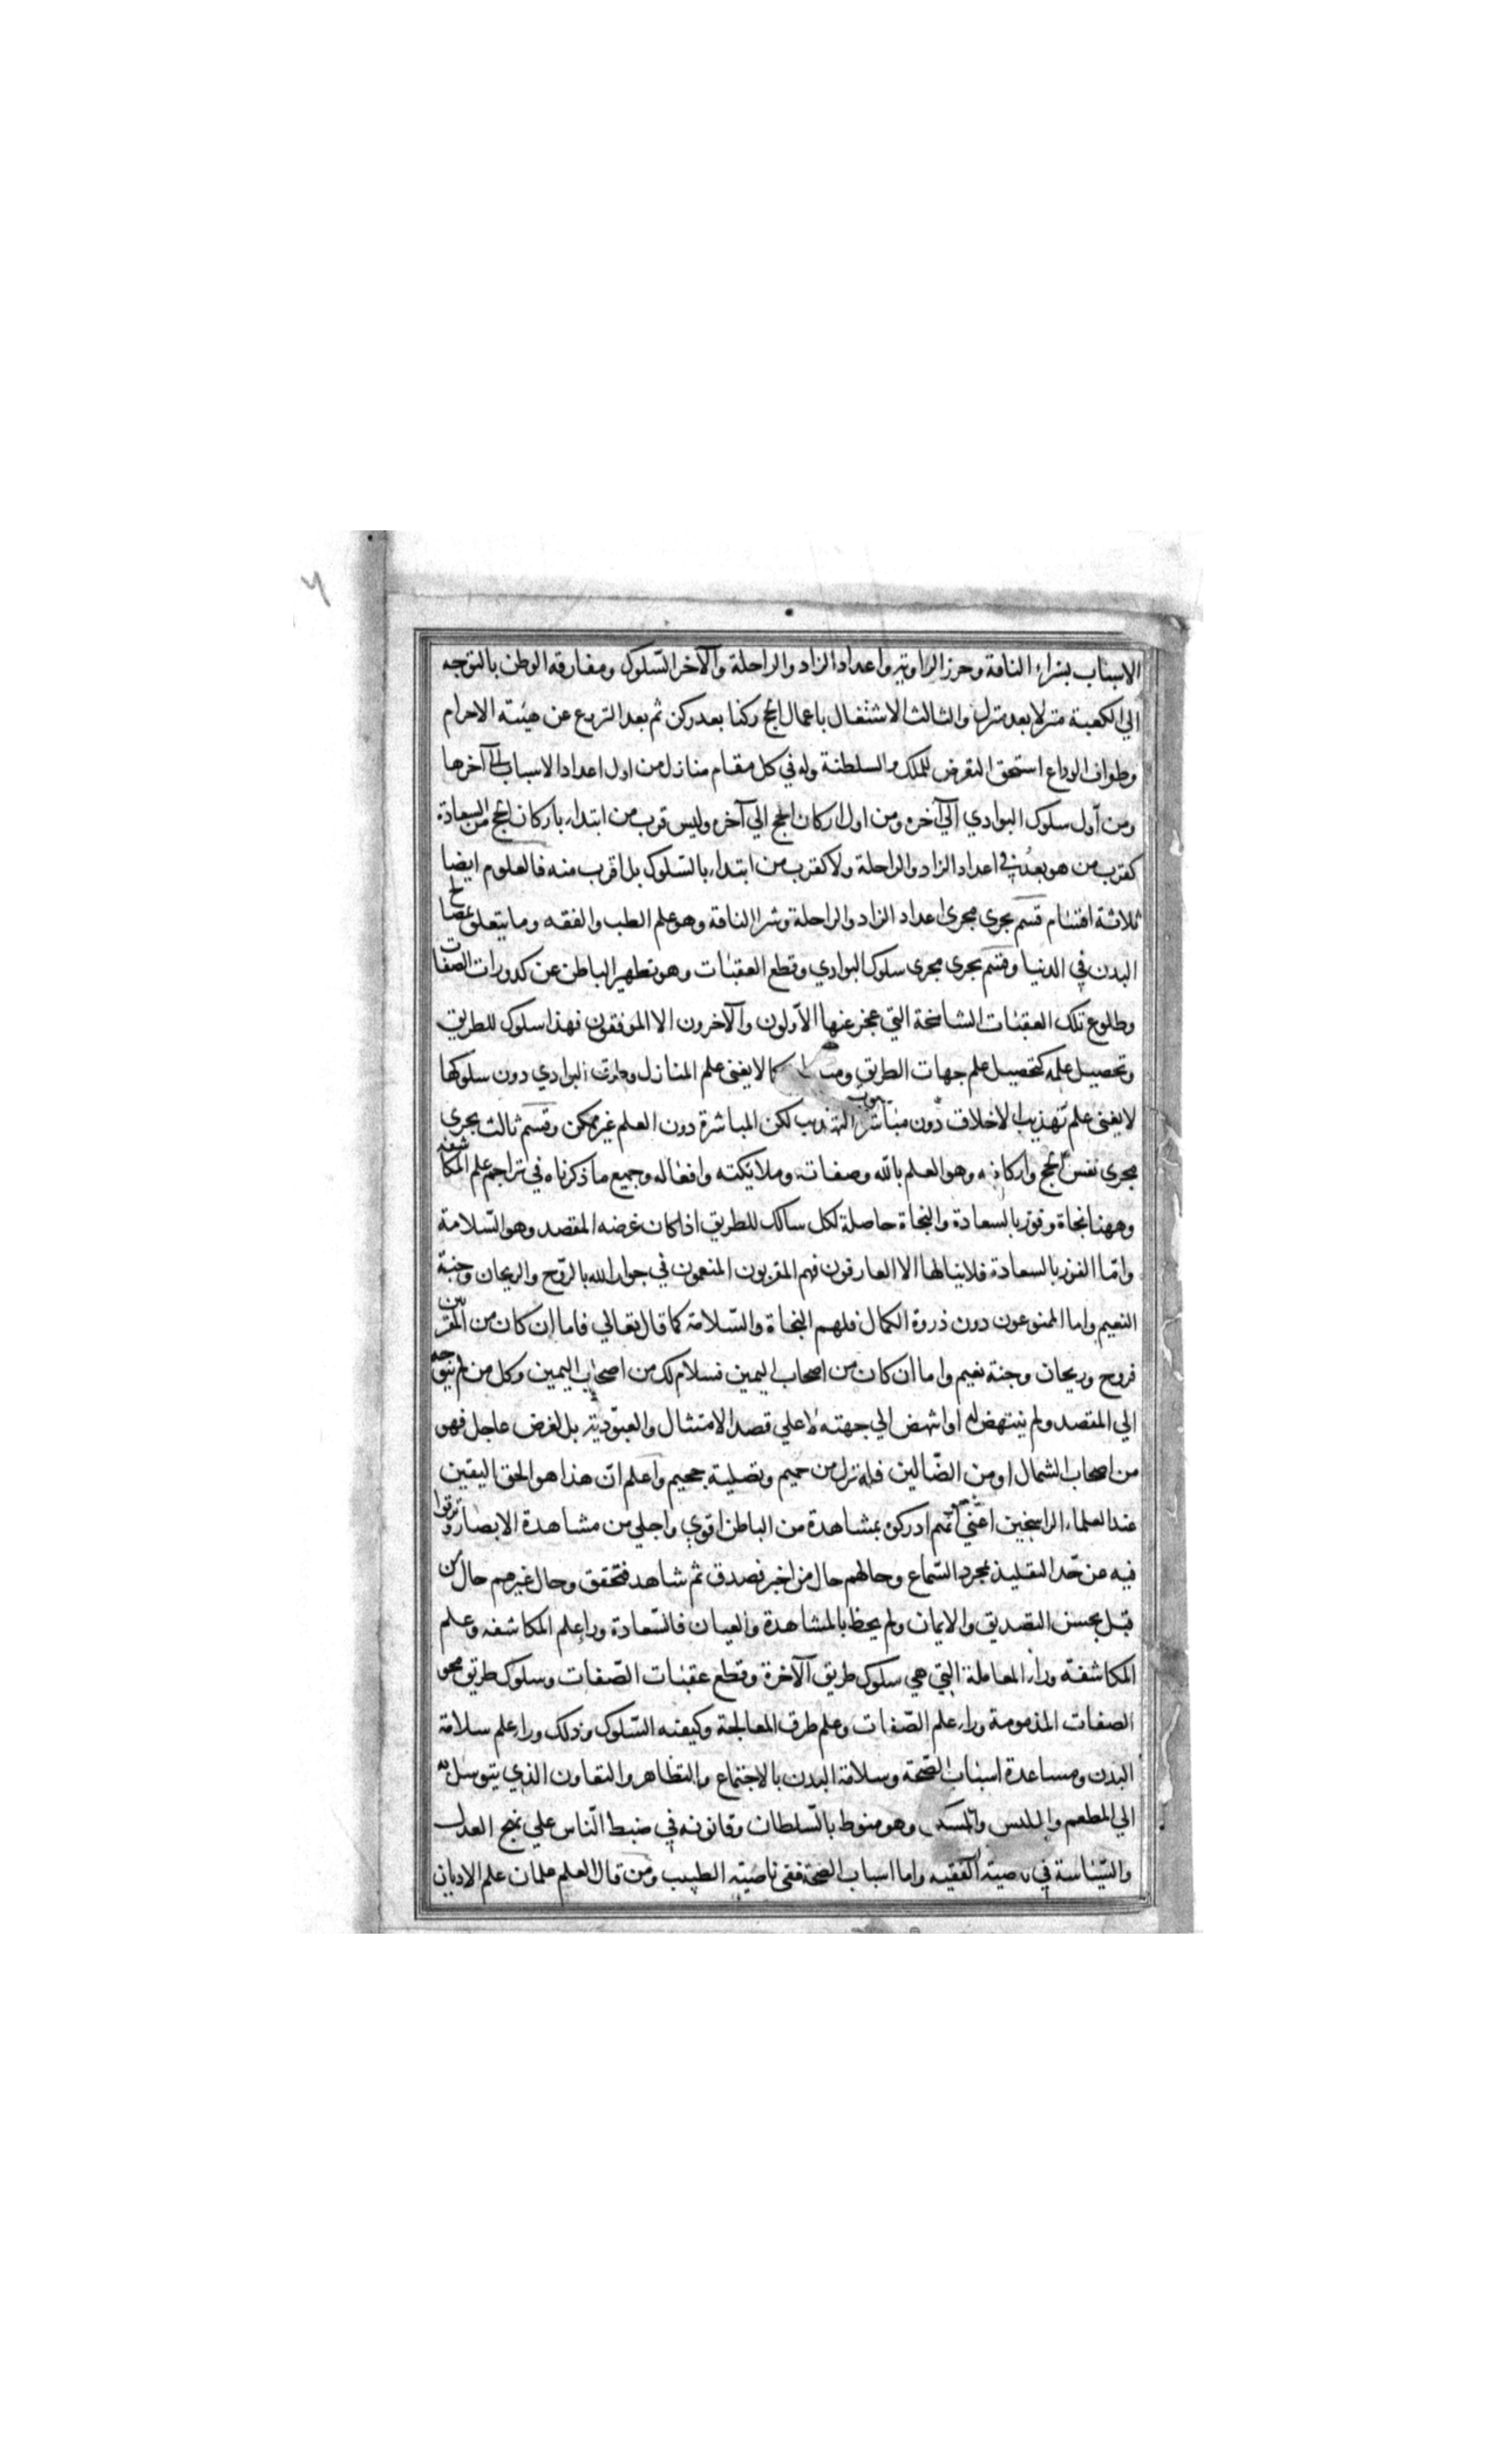 الاسباب بشراء الناقة وحرز الراوية واعداد الزاد والراحلة والآخر السّلوك ومفارقة الوطن بالتوجه
الي الكعبة منزلا بعد منزل والثالث الاشتغال باعمال الحج ركنا بعد ركن ثم بعد النزوع عن هيئة الاحرام
وطواف الوداع استحق التعرض للملك والسلطنة وله في كل مقام منازل من اول اعداد الاسباب الى آخرها
ومن أول سلوك البوادي الي آخره ومن اول اركان الحج الي آخره وليس قرب من ابتداء باركان الحج من السعادة
كقرب من هو بعدُ في اعداد الزاد والراحلة ولا كقرب من ابتداء بالسّلوك بل اقرب منه فالعلوم ايضا
ثلاثة اقسام قسم يجري مجري اعداد الزاد والراحلة وشرا الناقة وهو علم الطب والفقه وما يتعلق بمصالح
البدن في الدنيا وقسم يجري مجري سلوك البوادي وقطع العقبات وهو تطهير الباطن عن كدورات الصفات
وطلوع تلك العقبات الشامخة التي عجز عنها الأولون والآخرون الا الموفقون فهذا سلوك للطريق
وتحصيل علمه كتحصيل علم جهات الطريق كما لا يغني علم المنازل وطرق البوادي دون سلوكها
لا يغني علم تهذيب الاخلاق دون مباشرة التهذيب لكن المباشرة دون العلم غير ممكن وقسم ثالث يجري
مجري نفس الحج واركانه وهو العلم بالله وصفاته وملايكته وافعاله وجميع ما ذكرناه في تراجم علم المكاشفه
وههنا نجاة وفوز بالسعادة والنجاة حاصلة لكل سالك للطريق اذا كان غرضه المقصد وهو السّلامة
وامّا الفوز بالسعادة فلا ينالها الا العارفون فهم المقربون المنعمون في جوار الله بالرّوح والريحان وجنة
النعيم واما الممنوعون دون ذروة الكمال فلهم النجاة والسّلامة كما قال تعالي فاما ان كان من المقربين
فروح وريحان وجنة نعيم واما ان كان من اصحاب اليمين فسلام لك من اصحاب اليمين وكل من لم يتوجه
الي المقصد ولم ينتهض له او انتهض الي جهته لا علي قصد الامتثال والعبوديّة بل لغرض عاجل فهو
من اصحاب الشمال او من الضّالين فله نزل من حميم وتصلية جحيم واعلم ان هذا هو الحق اليقين
عند العلماء الراسخين اعني انّهم ادركوه بمشاهدة من الباطن اقوي واجلي من مشاهدة الابصار وترقوا
فيه عن حّد التقليد بمجرد السّماع وحالهم حال من اخبر فصدق ثم شاهد فتحقق وحال غيرهم حال من
قبل بحسن التصديق والايمان ولم يحظ بالمشاهدة والعيان فالسّعادة وراء علم المكاشفه وعلم
المكاشفة وراء المعاملة التي هي سلوك طريق الآخرة وقطع عقبات الصّفات وسلوك طريق محو
الصفات المذمومة وراء علم الصّفات وعلم طرق المعالجة وكيفية السّلوك وذلك وراء علم سلامة
البدن ومساعدة اسباب الصّحة وسلامة البدن بالاجتماع والتظاهر والتعاون الذي يتوسل به
الي المطعم والملبس والمسكن وهو منوط بالسّلطان وقانونه في ضبط النّاس علي نهج العدل
والسّياسة في ناصية الفقيه واما اسباب الصّحة ففي ناصية الطبيب ومن قال العلم علمان علم الاديان